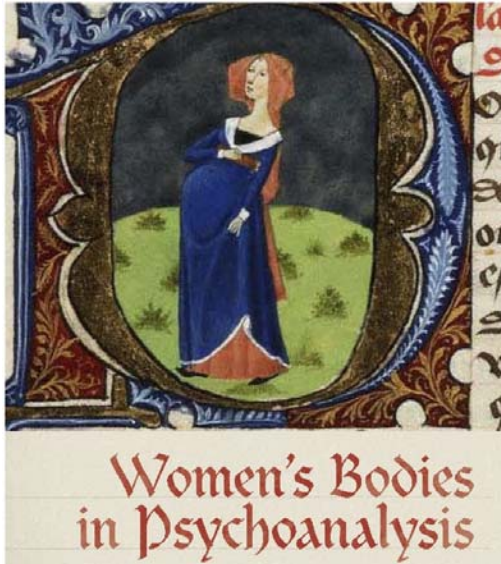 la
Women's Bodies
in Psychoanalysis